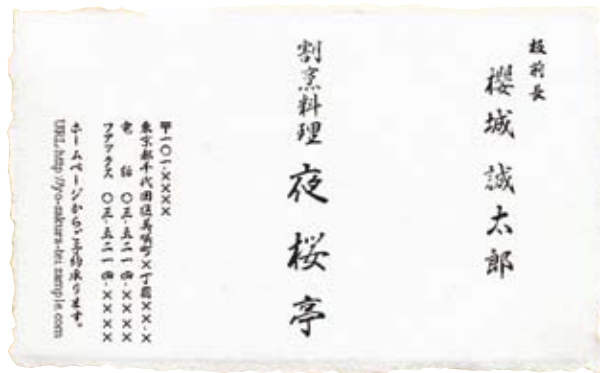 板前長
櫻城 誠太郎
割烹料理 夜桜亭
〒一〇一-××××
東京都千代田区美咲町×丁目××-×
電 話 〇三-五二一四-××××
ファックス 〇三-五二一四-××××
ホームページからご予約承ります。
URL.http://yo-zakura-tei.sample.com